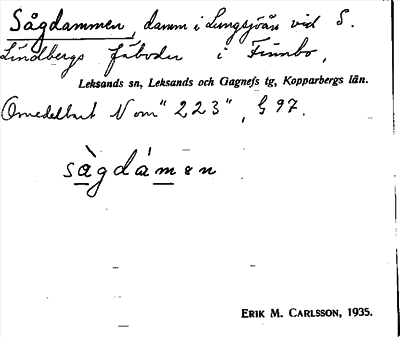 Sågdammen, damm i Lungsjöån vid S.
Lindbergs fäbodar i Finnbo,
Leksands sn, Leksands och Gagnefs tg, Kopparbergs län.
Omedelbart N om "223", G 97.
sàgdámen
ERIK M. CARLSSON, 1935.